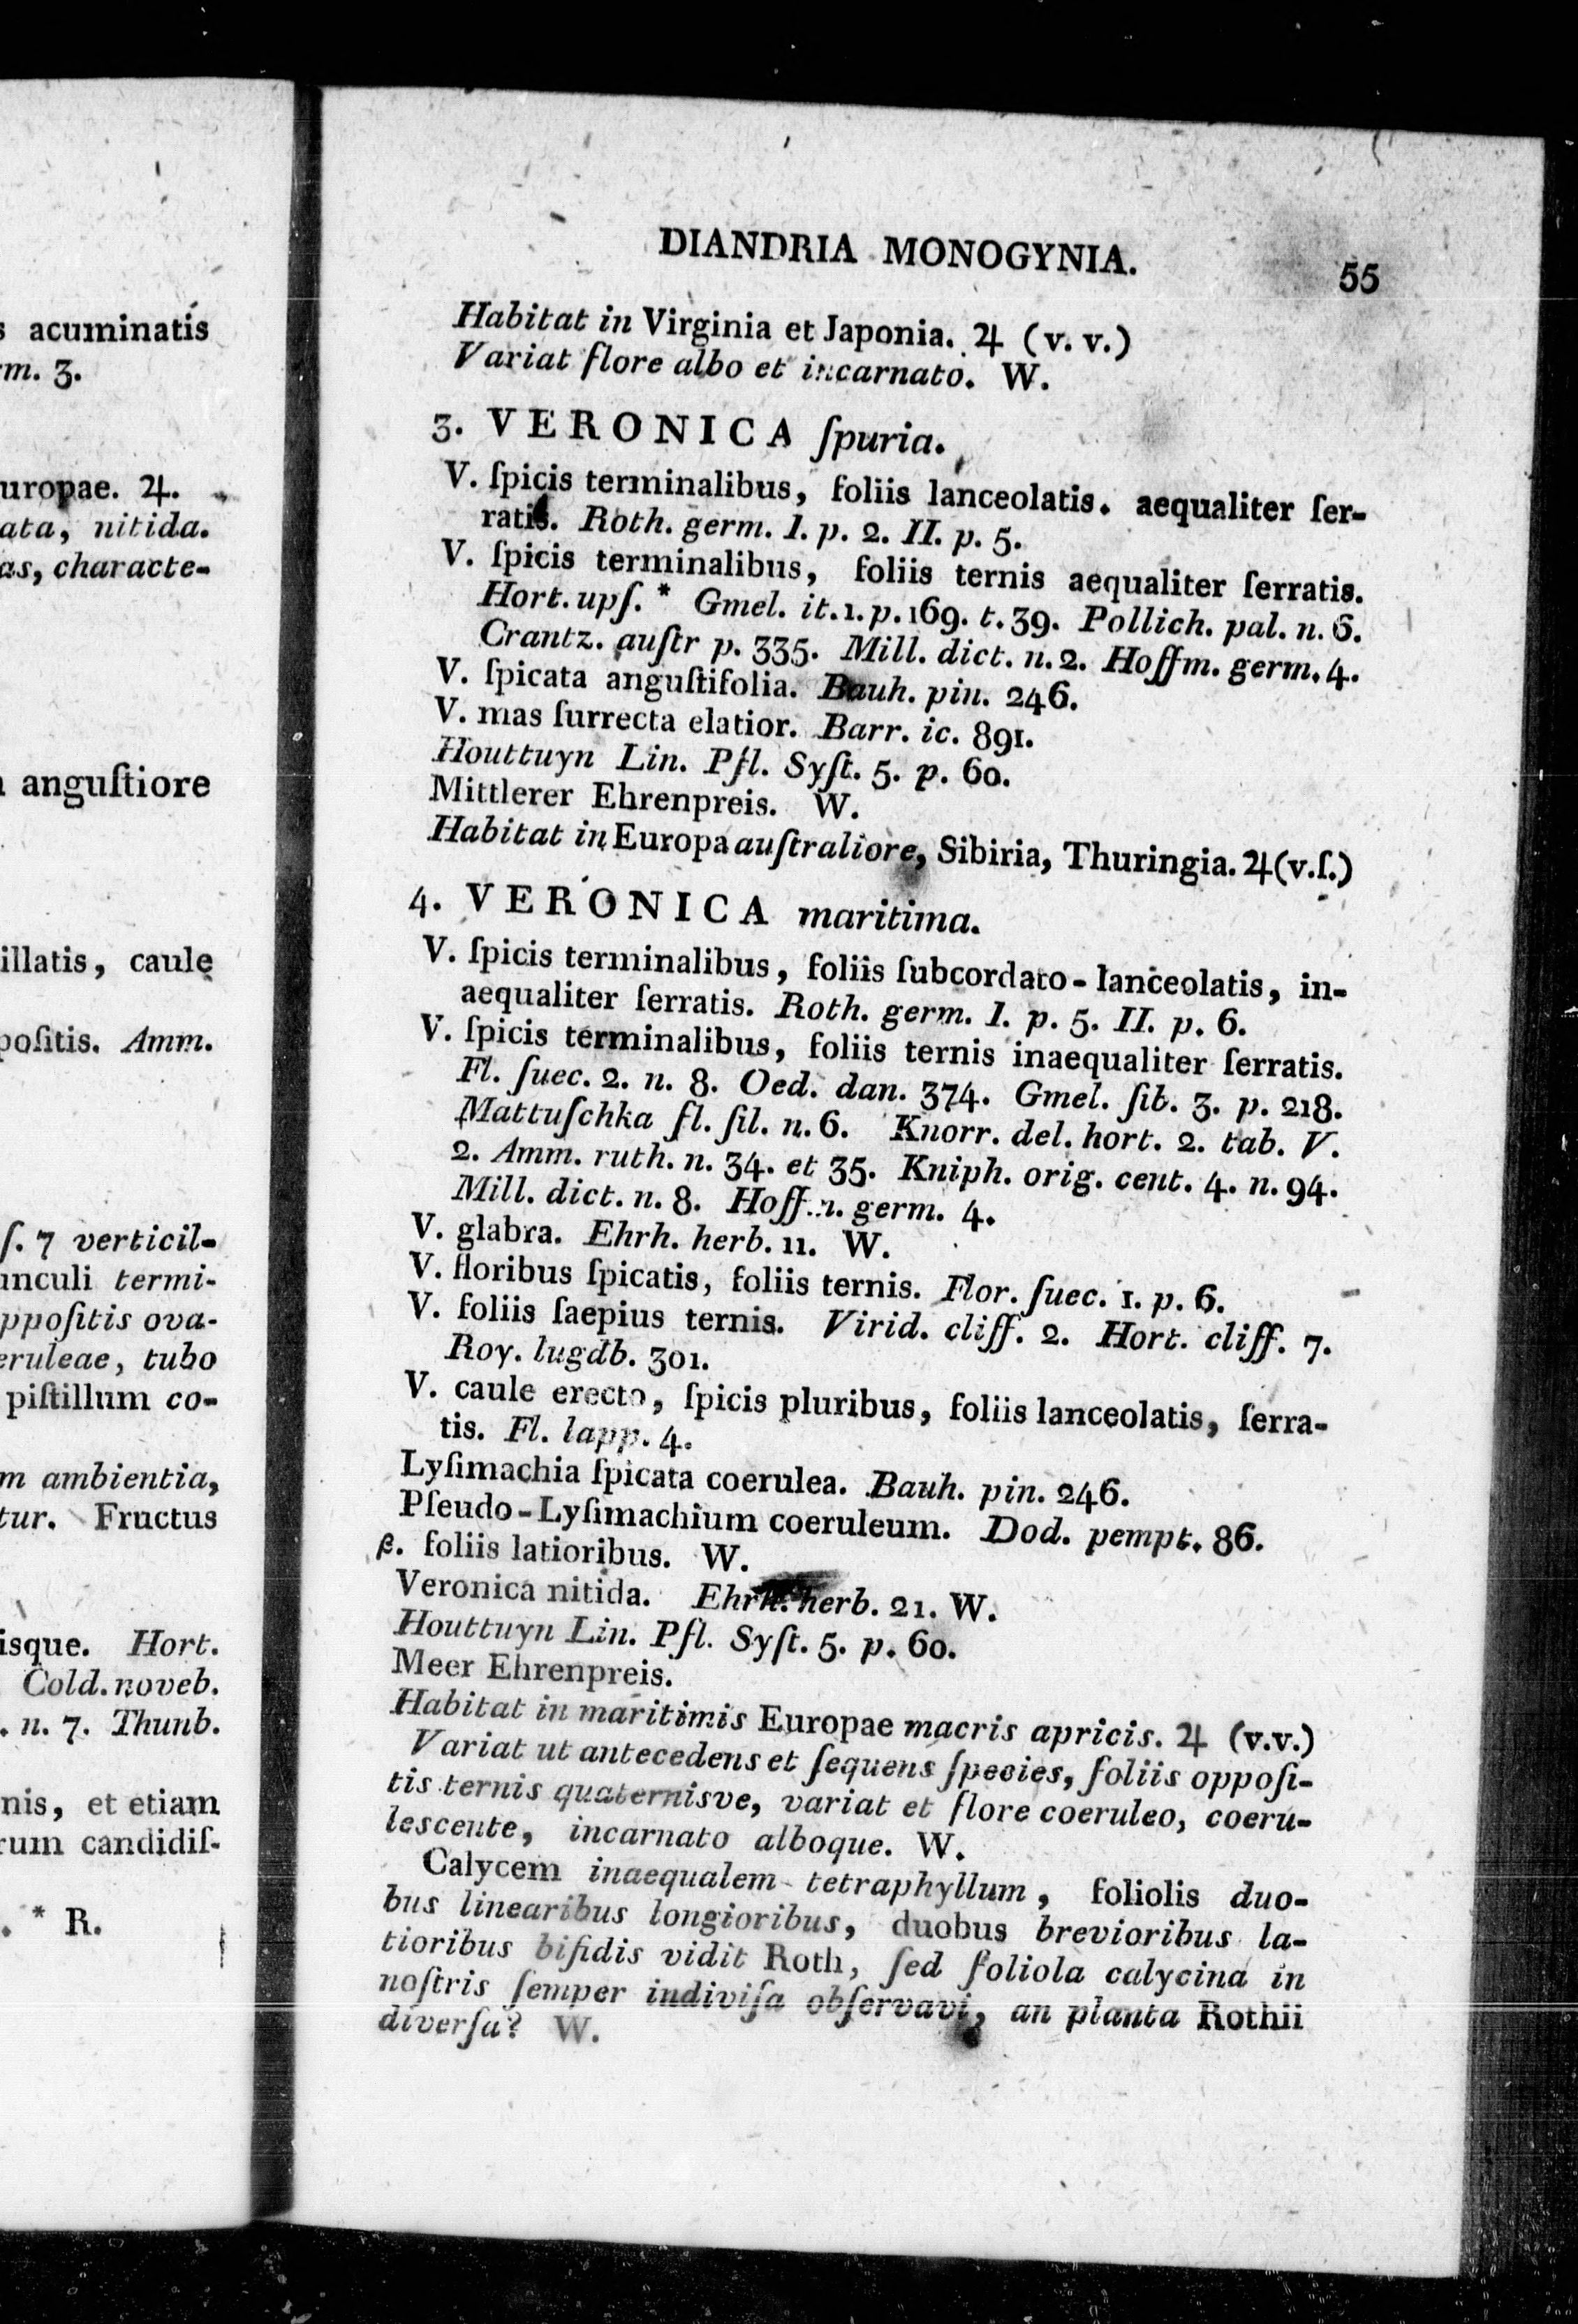 s acuminatis
rm. 3.
uropae. ♃.
ata, nitida.
as, characte-
n anguſtiore
illatis, caule
poſitis. Amm.
ſ. 7 verticil-
unculi termi-
ppoſitis ova-
eruleae, tubo
piſtillum co-
m ambientia,
tur. Fructus
isque. Hort.
Cold. noveb.
. n. 7. Thunb.
nis, et etiam
rum candidiſ-
. * R.
DIANDRIA MONOGYNIA. 55
Habitat in Virginia et Japonia. ♃ (v. v.)
Variat flore albo et incarnato. W.
3. VERONICA ſpuria.
V. ſpicis terminalibus, foliis lanceolatis. aequaliter ſer-
ratis. Roth. germ. I. p. 2. II. p. 5.
V. ſpicis terminalibus, foliis ternis aequaliter ſerratis.
Hort. upſ. * Gmel. it. 1. p. 169. t. 39. Pollich. pal. n. 6.
Crantz. auſtr p. 335. Mill. dict. n. 2. Hoffm. germ. 4.
V. ſpicata anguſtifolia. Bauh. pin. 246.
V. mas ſurrecta elatior. Barr. ic. 891.
Houttuyn Lin. Pfl. Syſt. 5. p. 60.
Mittlerer Ehrenpreis. W.
Habitat in Europa auſtraliore, Sibiria, Thuringia. ♃ (v. ſ.)
4. VERONICA maritima.
V. ſpicis terminalibus, foliis ſubcordato-lanceolatis, in-
aequaliter ſerratis. Roth. germ. I. p. 5. II. p. 6.
V. ſpicis terminalibus, foliis ternis inaequaliter ſerratis.
Fl. ſuec. 2. n. 8. Oed. dan. 374. Gmel. ſib. 3. p. 218.
Mattuſchka fl. ſil. n. 6. Knorr. del. hort. 2. tab. V.
2. Amm. ruth. n. 34. et 35. Kniph. orig. cent. 4. n. 94.
Mill. dict. n. 8. Hoffm. germ. 4.
V. glabra. Ehrh. herb. 11. W.
V. floribus ſpicatis, foliis ternis. Flor. ſuec. 1. p. 6.
V. foliis ſaepius ternis. Virid. cliff. 2. Hort. cliff. 7.
Roy. lugdb. 301.
V. caule erecto, ſpicis pluribus, foliis lanceolatis, ſerra-
tis. Fl. lapp. 4.
Lyſimachia ſpicata coerulea. Bauh. pin. 246.
Pſeudo-Lyſimachium coeruleum. Dod. pempt. 86.
β. foliis latioribus. W.
Veronica nitida. Ehrh. herb. 21. W.
Houttuyn Lin. Pfl. Syſt. 5. p. 60.
Meer Ehrenpreis.
Habitat in maritimis Europae macris apricis. ♃ (v. v.)
Variat ut antecedens et ſequens ſpecies, foliis oppoſi-
tis ternis quaternisve, variat et flore coeruleo, coeru-
lescente, incarnato alboque. W.
Calycem inaequalem tetraphyllum, foliolis duo-
bus linearibus longioribus, duobus brevioribus la-
tioribus bifidis vidit Roth, ſed foliola calycina in
noſtris ſemper indiviſa obſervavi, an planta Rothii
diverſa? W.